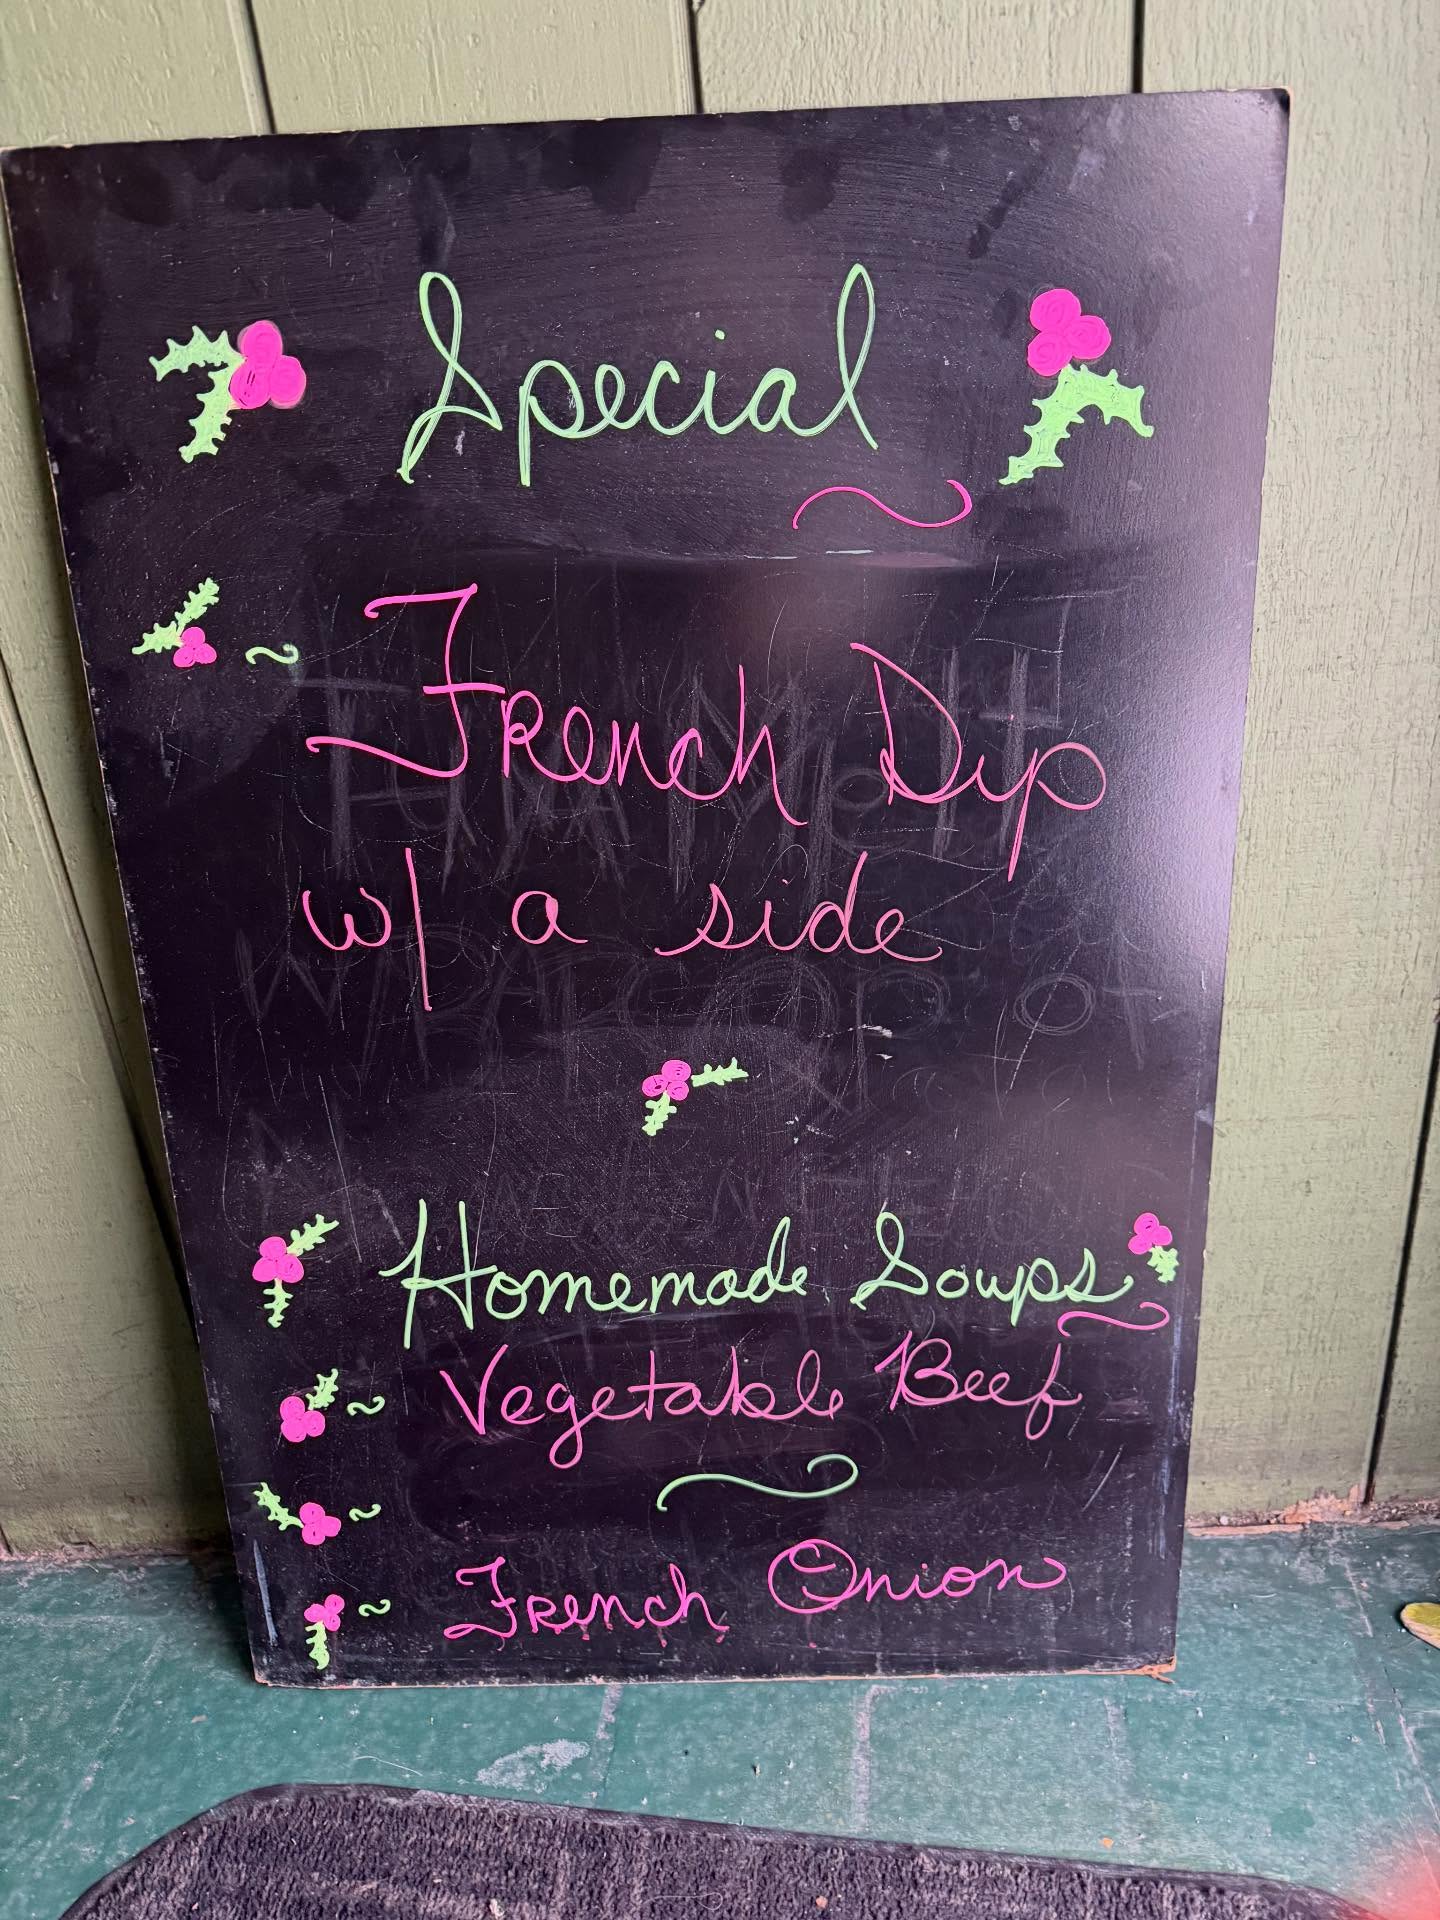 Special
French Dip
w/ a side
Homemade Soups
Vegetable Beef
French Onion